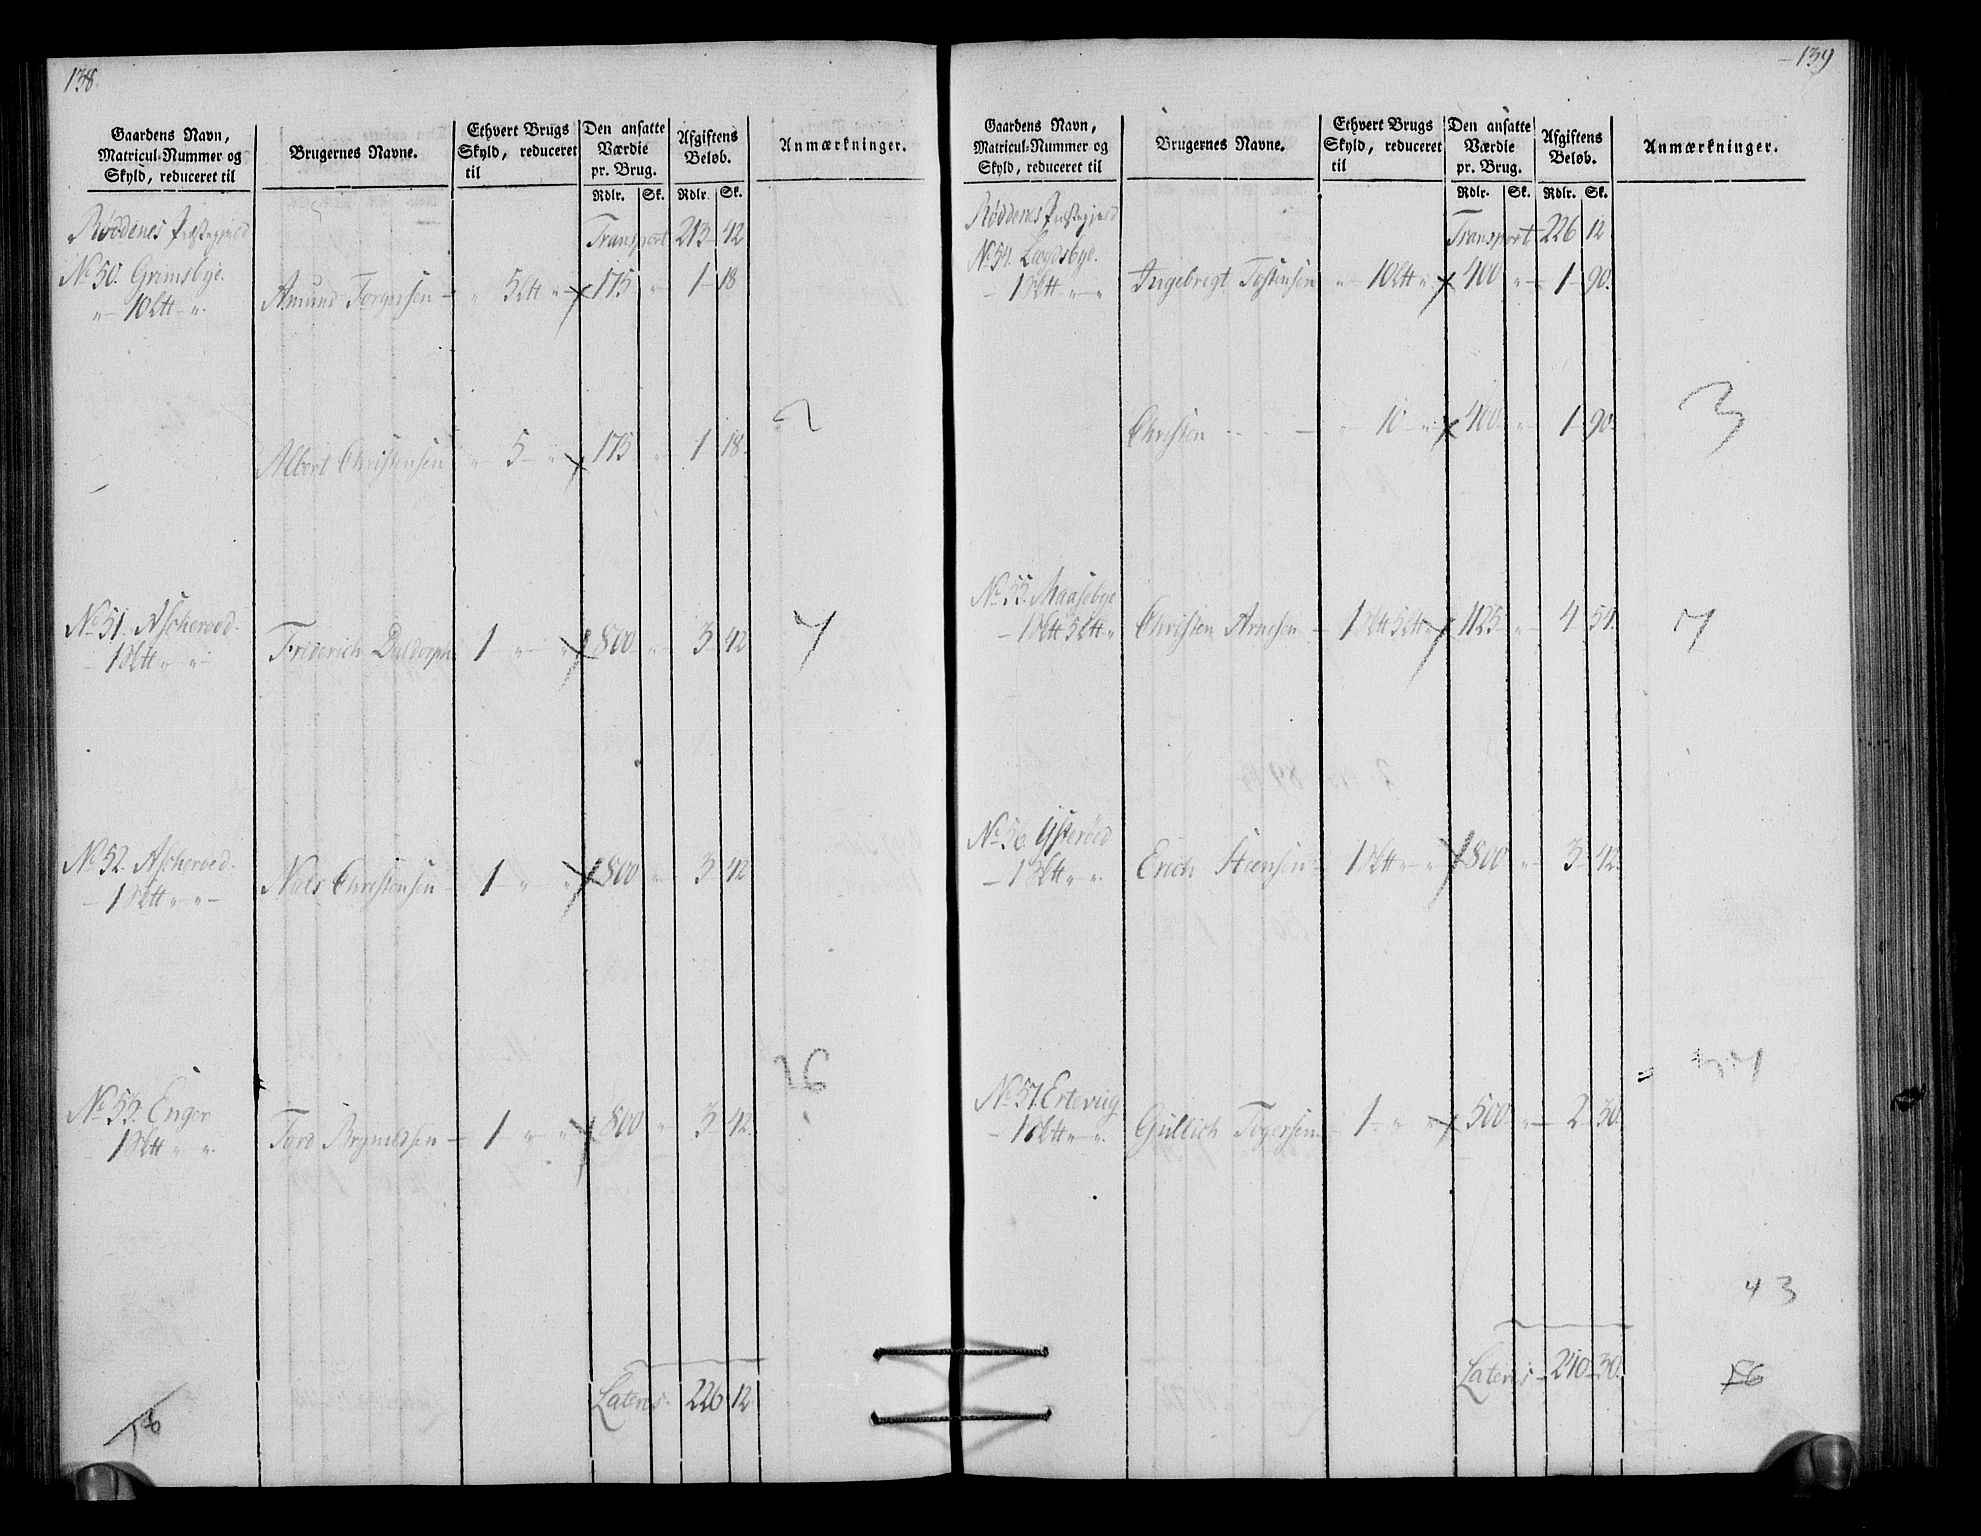 138.
Gaardens Navn,
Matricul-Nummer og
Skyld, reduceret til
Brugernes Navne.
Ethvert Brugs
Skyld, reduceret
til
Den ansatte
Værdie
pr. Brug.
Rdlr. Sk.
Afgiftens
Beløb.
Rdlr. Sk.
Anmærkninger.
Røddenes Præstegjeld
Transport 213 42
No 50. Grimsbye.
„ — 10 Ltt — „
Amund Torgersen — „ 5 Ltt „ 175 „ 1 18
2
Albert Christensen „ 5 „ 175 „ 1 18.
No 51. Ascheroed.
— 1 Sktt „ „
Friderich Daldorph 1 „ „ 800 „ 3 42
4
No 52. Ascheroed.
— 1 Sktt „ „ —
Niels Christensen — 1 „ „ 800 „ 3 42
16
No 53. Enger
1 Sktt „ „
Tord Brynildsen — 1 „ „ 800 „ 3 42
Lateris. 226 12
18
139
Gaardens Navn,
Matricul-Nummer og
Skyld, reduceret til
Brugernes Navne.
Ethvert Brugs
Skyld, reduceret
til
Den ansatte
Værdie
pr. Brug.
Rdlr. Sk.
Afgiftens
Beløb.
Rdlr. Sk.
Anmærkninger.
Røddenes Præstegjeld
Transport 226 12
No 54. Lægdsbye.
— 1 Sktt „ — „
Ingebrigt Tostensen „ 10 Ltt „ 400 „ 1 90.
3
Christen — „ 10 „ 400 „ 1 90.
No 55. Maasebye
— 1 Sktt 5 Ltt „
Christen Arnesen — 1 Sktt 5 Ltt „ 1125 „ 4 54.
4
No 56. Ysteröed
— 1 Sktt „ „
Erich Steensen 1 Sktt „ „ 800 „ 3 42.
No 57. Ertevug
— 1 Sktt „ „
Gullich Togersen 1 „ „ 500 „ 2 30.
43
Lateris — 240 30.
56